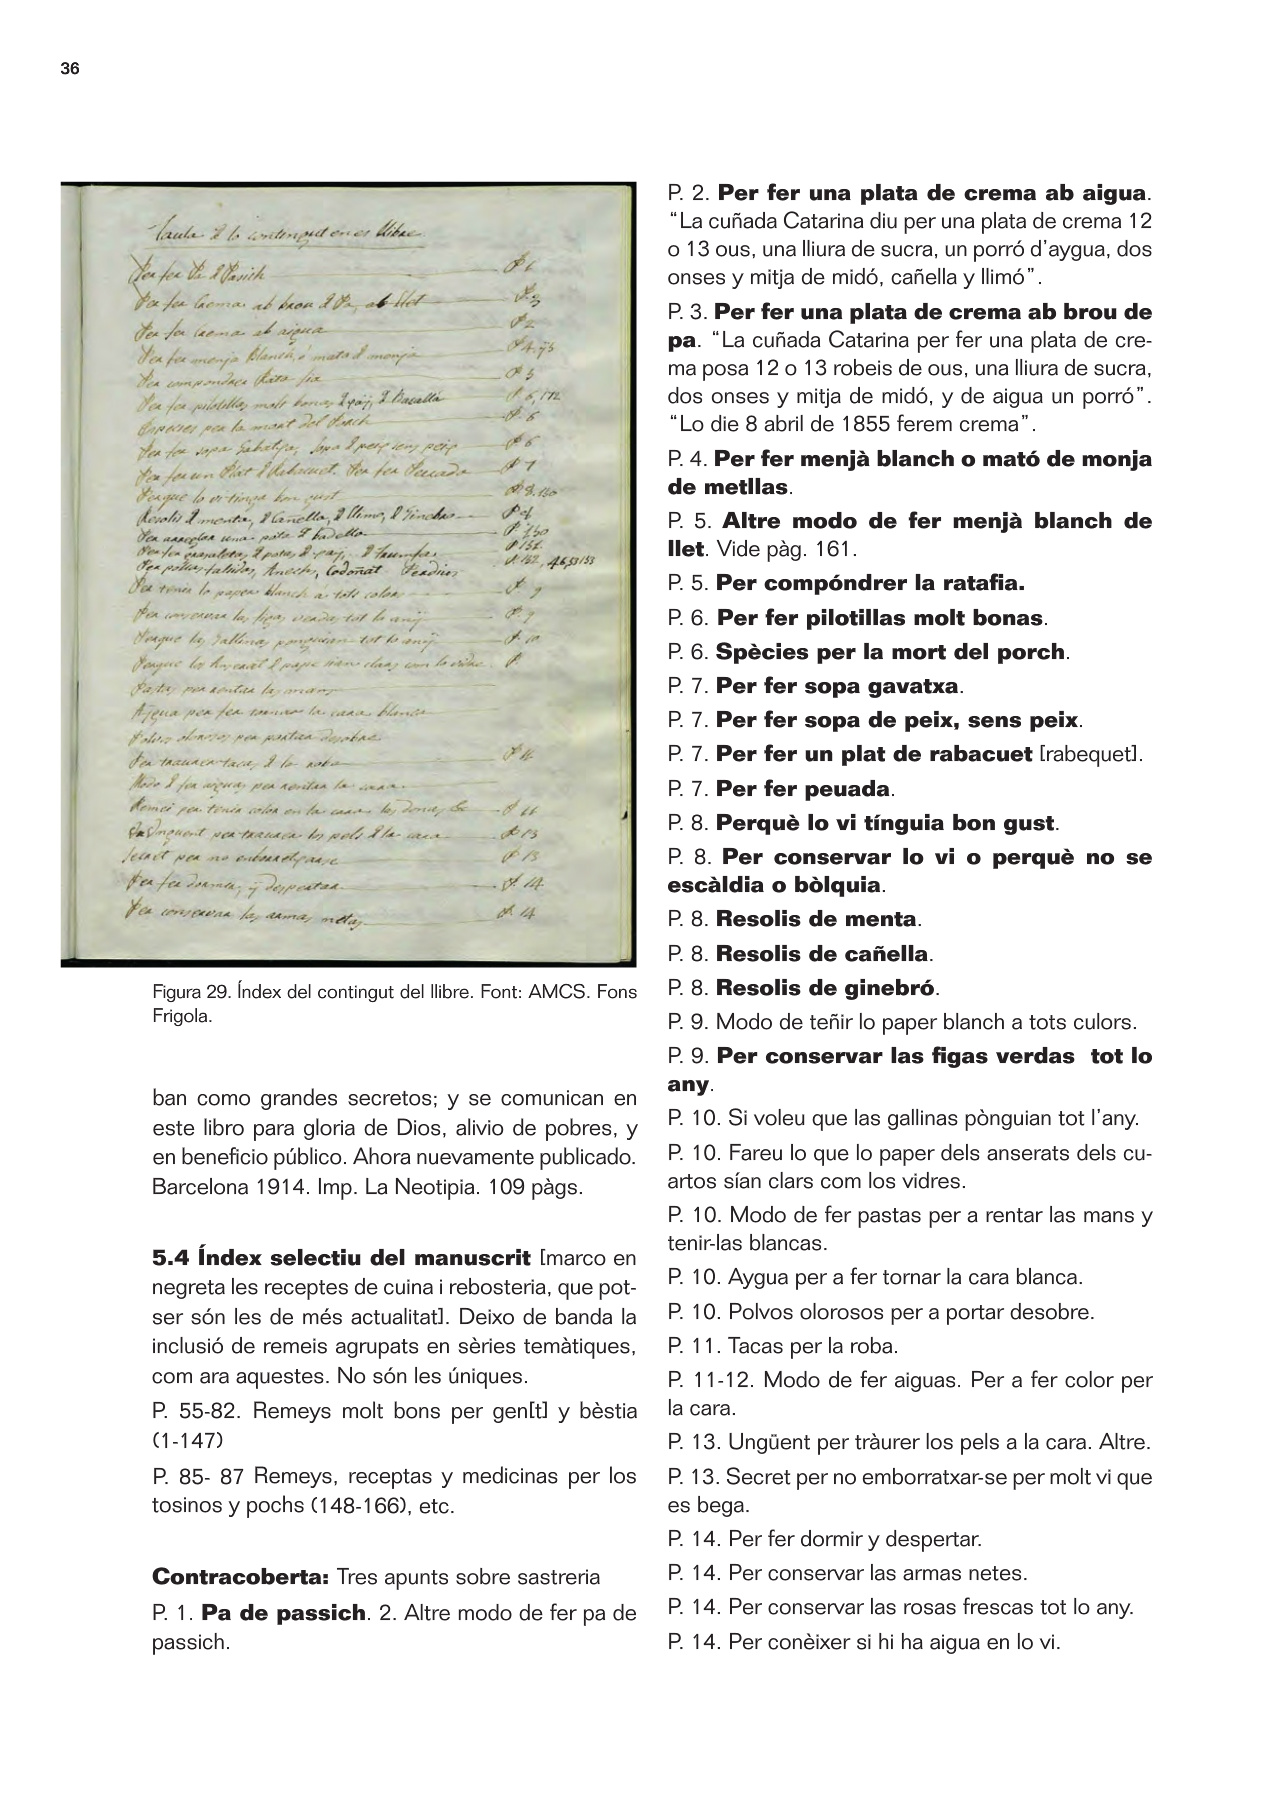 36
Taula d lo contingut en es llibre
Per fer Pa d Pasich P. 1
Per fer Crema ab brou d Pa, ab llet P. 3
Per fer Crema ab aigua P. 2
Per fer menja blanch, o mato d monja P. 4, y 5
Per compondrer Rata fia P. 5
Per fer pilotillas molt bonas, d P. 6, 172
Especies per la mort del Porch P. 6
Per fer sopa Gabatxa, sopa d peix sens peix P. 6
Per fer un Plat d Rabacuet. Per fer Peuada P. 7
Perque lo vi tinga bon gust P. 8, 150
Resolis d menta, d Canella, d llimo, d Ginebro P. 8
Per arreglar una pota d badella P. 150
Per fer P. 152
Per pollas farsidas, Anechs, Codoñat Perdius
Per tenir lo paper blanch a tots colors P. 9
Per conservar las figas verdas tot lo any P. 9
Perque las Gallinas ponguian tot lo any P. 10
Perque los d paper sian clars com lo vidre P.
Pastas per rentar las mans
Aygua per fer tornar la cara blanca
Polvos olorosos per portar desobre
Per traurer tacas d la roba P. 11
Modo d fer aiguas per rentar la cara
Remei per tenir color en la cara las donas &c P. 11
Ungüent per traurer los pels d la cara P. 13
Secret per no emborratxarse P. 13
Per fer dormir, y despertar P. 14
Per conservar las armas netas P. 14
Figura 29. Índex del contingut del llibre. Font: AMCS. Fons
Frigola.
ban como grandes secretos; y se comunican en
este libro para gloria de Dios, alivio de pobres, y
en beneficio público. Ahora nuevamente publicado.
Barcelona 1914. Imp. La Neotipia. 109 pàgs.
5.4 Índex selectiu del manuscrit [marco en
negreta les receptes de cuina i rebosteria, que pot-
ser són les de més actualitat]. Deixo de banda la
inclusió de remeis agrupats en sèries temàtiques,
com ara aquestes. No són les úniques.
P. 55-82. Remeys molt bons per gen[t] y bèstia
(1-147)
P. 85- 87 Remeys, receptas y medicinas per los
tosinos y pochs (148-166), etc.
Contracoberta: Tres apunts sobre sastreria
P. 1. Pa de passich. 2. Altre modo de fer pa de
passich.
P. 2. Per fer una plata de crema ab aigua.
“La cuñada Catarina diu per una plata de crema 12
o 13 ous, una lliura de sucra, un porró d’aygua, dos
onses y mitja de midó, cañella y llimó”.
P. 3. Per fer una plata de crema ab brou de
pa. “La cuñada Catarina per fer una plata de cre-
ma posa 12 o 13 robeis de ous, una lliura de sucra,
dos onses y mitja de midó, y de aigua un porró”.
“Lo die 8 abril de 1855 ferem crema”.
P. 4. Per fer menjà blanch o mató de monja
de metllas.
P. 5. Altre modo de fer menjà blanch de
llet. Vide pàg. 161.
P. 5. Per compóndrer la ratafia.
P. 6. Per fer pilotillas molt bonas.
P. 6. Spècies per la mort del porch.
P. 7. Per fer sopa gavatxa.
P. 7. Per fer sopa de peix, sens peix.
P. 7. Per fer un plat de rabacuet [rabequet].
P. 7. Per fer peuada.
P. 8. Perquè lo vi tínguia bon gust.
P. 8. Per conservar lo vi o perquè no se
escàldia o bòlquia.
P. 8. Resolis de menta.
P. 8. Resolis de cañella.
P. 8. Resolis de ginebró.
P. 9. Modo de teñir lo paper blanch a tots culors.
P. 9. Per conservar las figas verdas tot lo
any.
P. 10. Si voleu que las gallinas pònguian tot l’any.
P. 10. Fareu lo que lo paper dels anserats dels cu-
artos sían clars com los vidres.
P. 10. Modo de fer pastas per a rentar las mans y
tenir-las blancas.
P. 10. Aygua per a fer tornar la cara blanca.
P. 10. Polvos olorosos per a portar desobre.
P. 11. Tacas per la roba.
P. 11-12. Modo de fer aiguas. Per a fer color per
la cara.
P. 13. Ungüent per tràurer los pels a la cara. Altre.
P. 13. Secret per no emborratxar-se per molt vi que
es bega.
P. 14. Per fer dormir y despertar.
P. 14. Per conservar las armas netes.
P. 14. Per conservar las rosas frescas tot lo any.
P. 14. Per conèixer si hi ha aigua en lo vi.